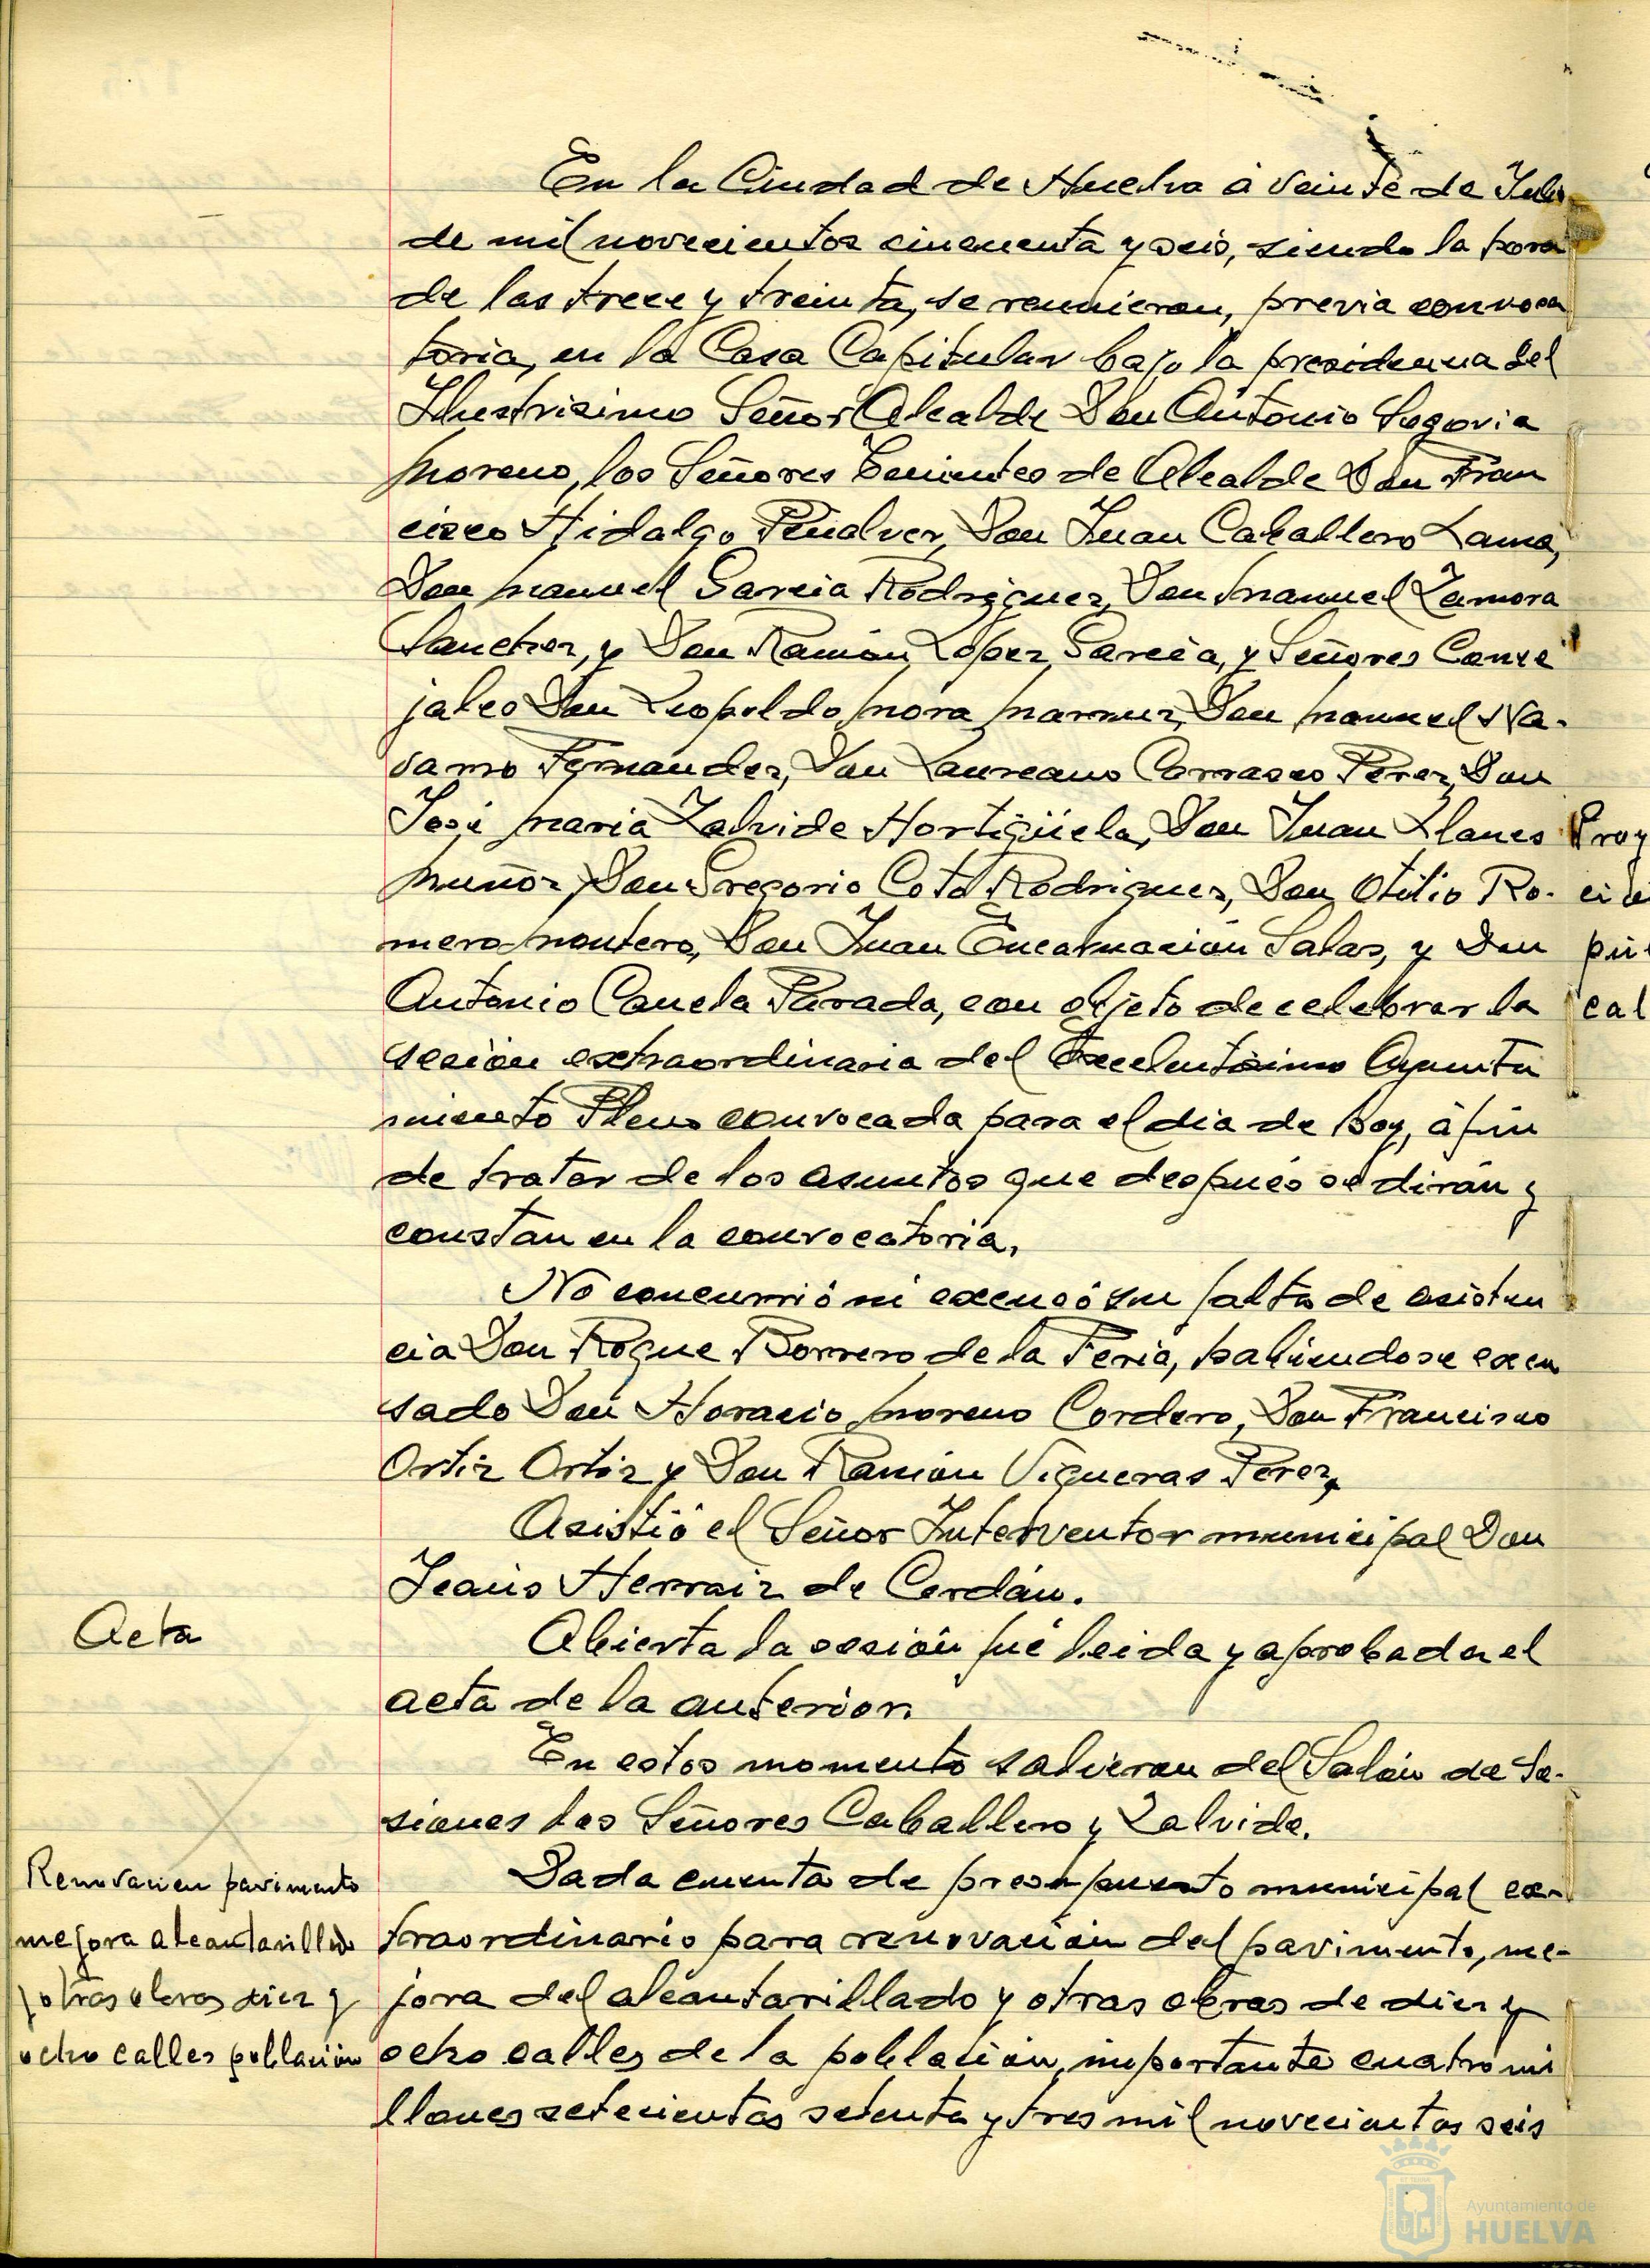 En la Ciudad de Huelva á veinte de Julio
de mil novecientos cincuenta y seis, siendo la hora
de las trece y treinta, se reunieron, previa convoca
toria, en la Casa Capitular bajo la presidencia del
Ilustrisimo Señor Alcalde Don Antonio Segovia
Moreno, los Señores Tenientes de Alcalde Don Fran
cisco Hidalgo Peñalver, Don Juan Caballero Lama,
Don Manuel Garcia Rodriguez, Don Manuel Zamora
Sanchez, y Don Ramón López Garcia, y Señores Conce
jales Don Leopoldo Mora Don Manuel Na-
varro Fernandez, Don Laureano Carrasco Perez, Don
José Maria Zalvide Hortigüela, Don Juan Llanes
Muñoz, Don Gregorio Coto Rodriguez, Don Otilio Ro-
mero Montero, Don Juan Encarnación Salas, y Don
Antonio Canela Parada, con objeto de celebrar la
sesión extraordinaria del Excelentisimo Ayunta
miento Pleno convocada para el dia de hoy, á fin
de tratar de los asuntos que después se dirán y
constan en la convocatoria.
No concurrió ni excusó su falta de asisten
cia Don Roque Borrero de la Feria, habiendose excu
sado Don Horacio Moreno Cordero, Don Francisco
Ortiz Ortiz y Don Ramón Vigueras Perez,
Asistió el Señor Interventor municipal Don
Jesús Herraiz de Cerdán.
Acta
Abierta la sesión fué leida y aprobada el
acta de la anterior.
En estos momento salieron del Salón de Se-
siones los Señores Caballero y Zalvide.
Renovacion pavimento
mejora alcantarillado
y otras obras diez y
ocho calles población
Dada cuenta de presupuesto municipal ex-
traordinario para renovación del pavimento, me-
jora del alcantarillado y otras obras de diez y
ocho calles de la población, importante cuatro mi
llones setecientas setenta y tres mil novecientas seis
Proy
cal
Ayuntamiento de
HUELVA